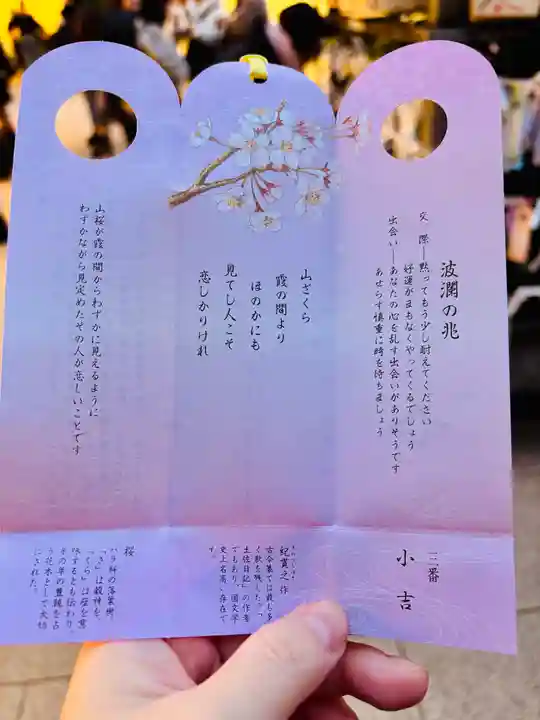 波瀾の兆
交 際―黙ってもう少し耐えてください
好運がまもなくやってくるでしょう
出会い―あなたの心を乱す出会いがありそうです
あせらず慎重に時を待ちましょう
三番
小吉
山ざくら
霞の間より
ほのかにも
見てし人こそ
恋しかりけれ
紀貫之 作
古今集では最も多
く歌を残した。「
土佐日記」の作者
でもあり、国文学
史上名高い存在で
す。
山桜が霞の間からわずかに見えるように
わずかながら見定めたその人が恋しいことです
桜
バラ科の落葉樹。
「さ」は穀神を、
「くら」は座を意
味するとも伝わり、
その年の豊穣を占
う花木として大切
にされた。